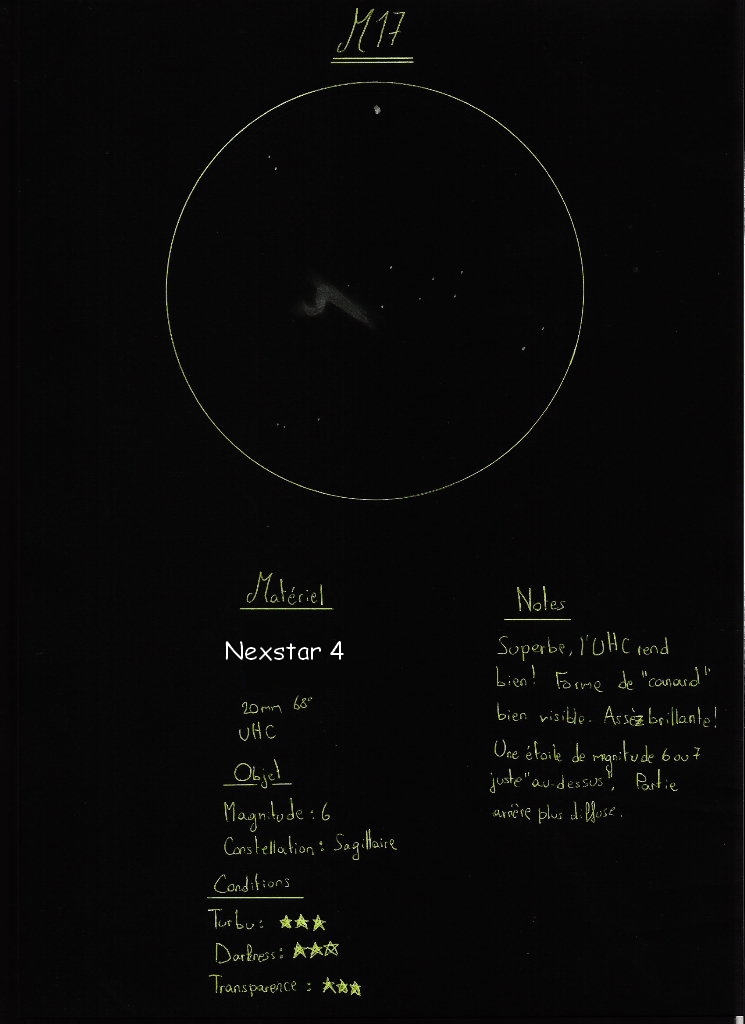 M17
Matériel
Nexstar 4
20mm 68°
UHC
Objet
Magnitude : 6
Constellation : Sagittaire
Conditions
Turbu : ★★★
Darkness : ★★★
Transparence : ★★★
Notes
Superbe, l'UHC rend
bien! Forme de "canard"
bien visible. Assez brillante!
Une étoile de magnitude 6 ou 7
juste "au-dessus". Partie
arrière plus diffuse.